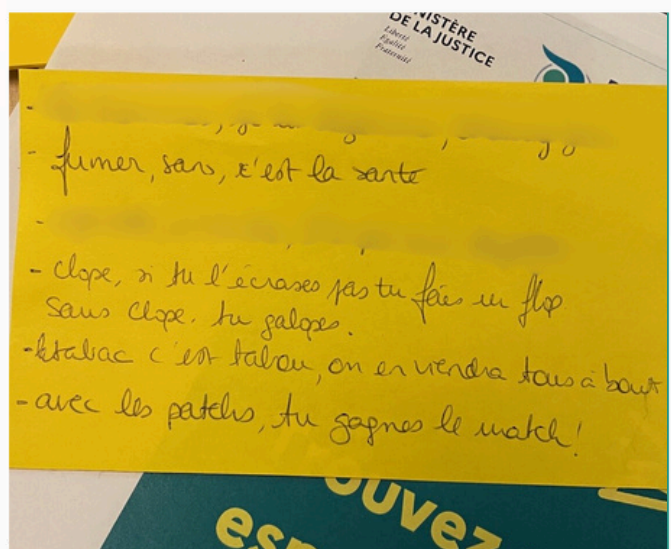 MINISTÈRE
DE LA JUSTICE
Liberté
Égalité
Fraternité
-
- fumer, sans, c'est la santé
-
- clope, si tu l'écrases pas tu fais un flop
sans clope. tu galopes.
- le tabac c'est tabou, on en viendra tous à bout
- avec les patchs, tu gagnes le match !
ouvez